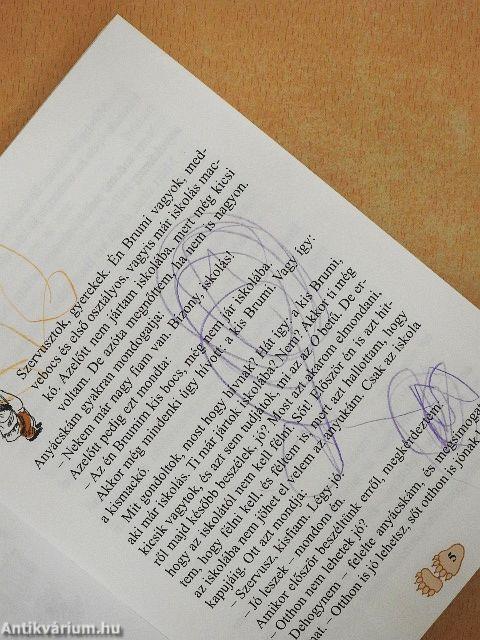 Szervusztok, gyerekek. Én Brumi vagyok, med-
vebocs és első osztályos, vagyis már iskolás mac-
kó. Azelőtt nem jártam iskolába, mert még kicsi
voltam. De azóta megnőttem, ha nem is nagyon.
Anyácskám gyakran mondogatja:
– Nekem már nagy fiam van. Bizony, iskolás!
Azelőtt pedig ezt mondta:
– Az én Brumim kis bocs, még nem jár iskolába.
Akkor még mindenki úgy hívott: a kis Brumi. Vagy így:
a kismackó.
Mit gondoltok, most hogy hívnak? Hát így: a kis Brumi,
aki már iskolás. Ti már jártok iskolába? Nem? Akkor ti még
kicsik vagytok, és azt sem tudjátok, mi az az O betű. De er-
ről majd később beszélek, jó? Most azt akarom elmondani,
hogy az iskolától nem kell félni. Sőt! Először én is azt hit-
tem, hogy félni kell, és féltem is, mert azt hallottam, hogy
az iskolába nem jöhet el velem az anyukám. Csak az iskola
kapujáig. Ott azt mondja:
– Szervusz, kisfiam. Légy jó.
– Jó leszek – mondom én.
Amikor először beszéltünk erről, megkérdeztem:
– Otthon nem lehetek jó?
Dehogynem – felelte anyácskám, és megsimogat
– Otthon is jó lehetsz, sőt otthon is jónak
5
Antikvárium.hu